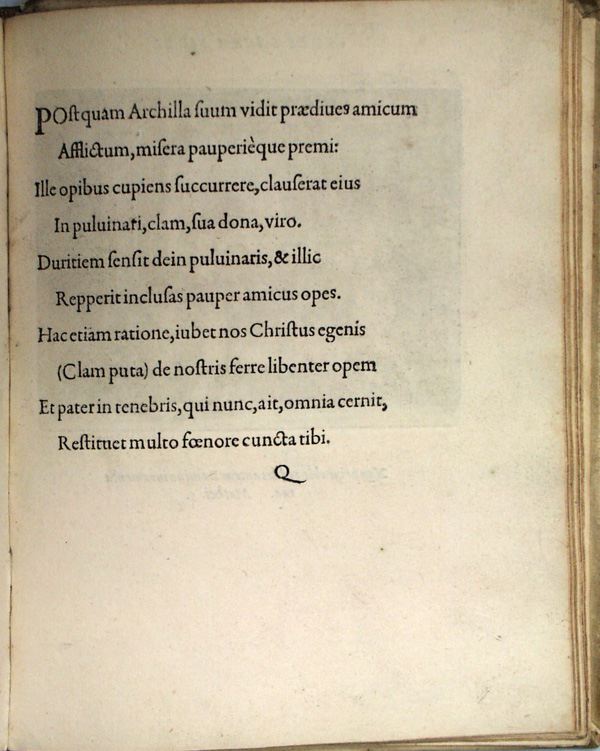 POſtquam Archilla ſuum vidit prædiues amicum
Afflictum, miſera pauperièque premi:
Ille opibus cupiens ſuccurrere, clauſerat eius
In puluinari, clam, ſua dona, viro.
Duritiem ſenſit dein puluinaris, & illic
Repperit incluſas pauper amicus opes.
Hac etiam ratione, iubet nos Chriſtus egenis
(Clam puta) de noſtris ferre libenter opem
Et pater in tenebris, qui nunc, ait, omnia cernit,
Reſtituet multo fœnore cuncta tibi.
Q